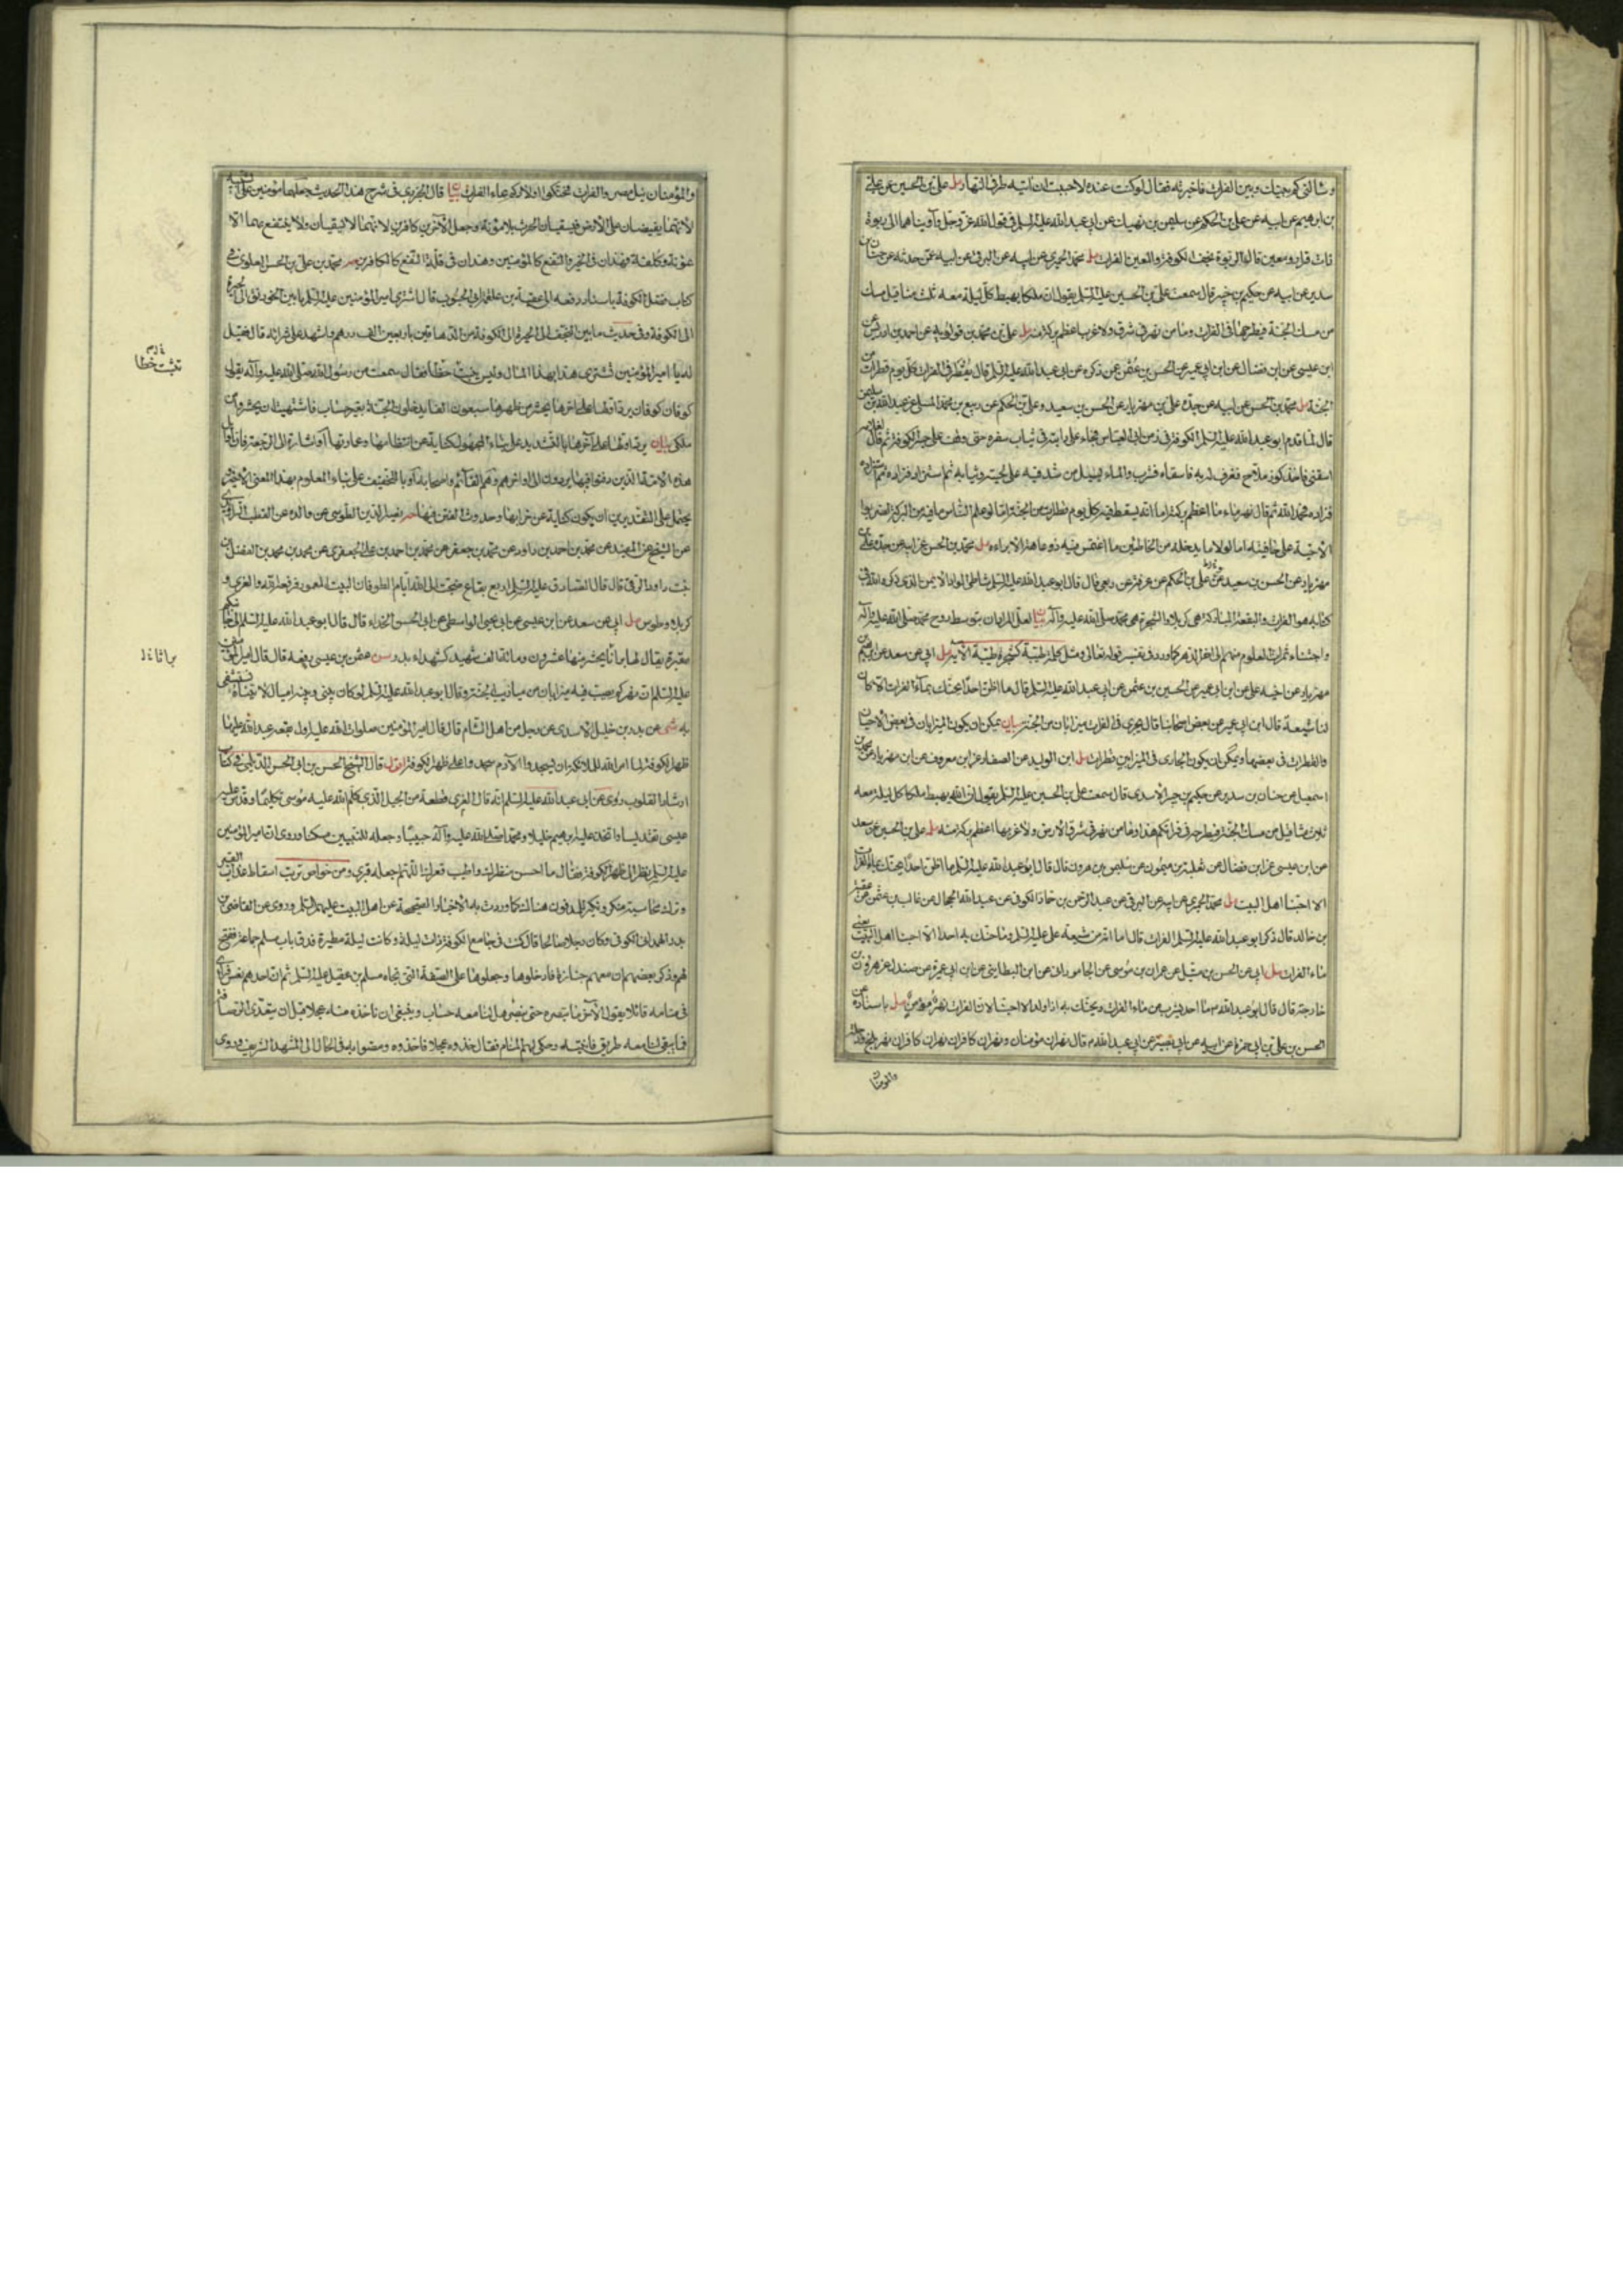 وسالنى كم بينك وبين الفرات فاخبرته فقال لو كنت عنده لاحببت ان اتيه طرفى النهار مل على بن الحسين عن على
بن ابرهيم عن ابيه عن على بن الحكم عن سليمن بن نهيك عن ابى عبد الله عليه السلم فى قول الله عز وجل وآويناهما الى ربوة
ذات قرار ومعين قال الربوة نجف الكوفة والمعين الفرات مل محمد الحميرى عن ابيه عن البرقى عن ابيه عمن حدثه عن حنان بن
سدير عن ابيه عن حكيم بن جبير قال سمعت على بن الحسين عليه السلم يقول ان ملكا يهبط كل ليلة معه ثلث مثاقيل مسك
من مسك الجنة فيطرحها فى الفرات وما من نهر فى شرق ولا غرب اعظم بركة منه مل على بن محمد بن قولويه عن احمد بن ادريس عن
ابن عيسى عن ابن فضال عن ابن ابى عمير عن الحسن بن عثمن عن ذكره عن ابى عبد الله عليه السلم قال يقطر فى الفرات كل يوم قطرات من
الجنة مل محمد بن الحسن عن ابيه عن جده على بن مهزيار عن الحسن بن سعيد وعلى بن الحكم عن ربيع بن محمد المسلى عن عبد الله بن سليمن
قال لما قدم ابو عبد الله عليه السلم الكوفة فى زمن ابى العباس فجاء على دابته فى ثياب سفره حتى وقف على جسر الكوفة ثم قال لغلامه
اسقنى فاخذ كوز ملاح فغرف له به فاسقاه فشرب والماء يسيل من شدقيه على لحيته وثيابه ثم استزاده فزاده ثم استزاده
فزاده فحمد الله ثم قال نهر ماء ما اعظم بركته اما انه يسقط فيه كل يوم قطرات من الجنة اما لو علم الناس ما فيه من البركة لضربوا
الاخبية على حافيته اما لولا ما يدخله من الخاطئين ما اغتمس فيه ذو عاهة الا براء مل محمد بن الحسن عن ابيه عن جده على بن
مهزيار عن الحسن بن سعيد عن على بن الحكم عن عرفة عن ربعى قال قال ابو عبد الله عليه السلم شاطئ الواد الايمن الذى ذكره الله فى
كتابه هو الفرات والبقعة المباركة هى كربلا والشجرة هى محمد صلى الله عليه وآله بيان لعل المراد ان بتوسط روح محمد صلى الله عليه وآله
واجتناء ثمرات العلوم منهم الى اخر الدهر كما ورد فى تفسير قوله تعالى ومثل كلمة طيبة كشجرة طيبة الآية مل ابى عن سعد عن ابرهيم بن
مهزيار عن اخيه على عن ابن ابى عمير عن الحسين بن عثمن عن ابى عبد الله عليه السلم قال ما اظن احدا يحنك بماء الفرات الا كان
لنا شيعة قال ابن ابى عمير عن بعض اصحابنا قال يجرى فى الفرات ميزابان من الجنة بيان يمكن ان يكون الميزابان فى بعض الاحيان
والقطرات فى بعضها ويمكن ان يكون الجارى فى الميزابين قطرات مل ابن الوليد عن الصفار عن ابن معروف عن ابن مهزيار عن محمد بن
اسمعيل عن حنان بن سدير عن حكيم بن جبير الاسدى قال سمعت على بن الحسين عليه السلم يقول ان الله يهبط ملكا كل ليلة معه
ثلاث مثاقيل من مسك الجنة فيطرحه فى فراتكم هذا وما من نهر فى شرق الارض ولا غربها اعظم بركة منه مل على بن الحسين عن سعد
عن ابن عيسى عن ابن فضال عن ثعلبة بن ميمون عن سليمن بن هرون قال قال ابو عبد الله عليه السلم ما اظن احدا يحنك بماء الفرات
الا احبنا اهل البيت مل محمد الحميرى عن ابيه عن البرقى عن عبد الرحمن بن حماد الكوفى عن عبد الله الحجال عن غالب بن عثمن عن عقبة
بن خالد قال ذكر ابو عبد الله عليه السلم الفرات قال اما انه من شيعة على عليه السلم وما حنك به احد الا احبنا اهل البيت يعنى
ماء الفرات مل ابى عن الحسن بن متيل عن عمران بن موسى عن الجامورانى عن ابن البطاينى عن ابن ابى عميرة عن صندل عن هرون بن
خارجة قال قال ابو عبد الله م ما احد يشرب من ماء الفرات ويحنك به اذا ولد الا احبنا لان الفرات نهر مؤمن مل باسناده عن
الحسن بن على بن ابى حمزة عن ابيه عن ابى بصير عن ابى عبد الله م قال نهران مؤمنان ونهران كافران نهران كافران نهر بلخ ودجلة
والمومنان
والمؤمنان نيل مصر والفرات فحنكوا اولادكم بماء الفرات بيان قال الجزرى فى شرح هذا الحديث جعلهما مؤمنين على التشبيه
لانهما يفيضان على الارض فيسقيان الحرث بلا مؤنة وجعل الآخرين كافرين لانهما لا يسقيان ولا ينتفع بهما الا
بمؤنة وكلفة فهذان فى الخير والنفع كالمؤمنين وهذان فى قلة النفع كالكافرين محمد بن على بن الحسن العلوى فى
كتاب فضل الكوفة باسناد رفعه الى عقبة بن علقمة ابى الجنوب قال اشترى امير المؤمنين عليه السلم ما بين الخورنق الى الحيرة
الى الكوفة وفى حديث ما بين النجف الى الحيرة الى الكوفة من الدهاقين باربعين الف درهم واشهد على شرائه قال فقيل
له يا امير المؤمنين تشترى هذا بهذا المال وليس ينبت حظا فقال سمعت من رسول الله صلى الله عليه وآله يقول
كوفان كوفان يرد اولها على اخرها يحشر من ظهرها سبعون الفا يدخلون الجنة بغير حساب فاشتهيت ان يحشروا من
ملكى بيان يرد اولها على آخرها بالتشديد على بناء المجهول كناية عن انتظامها وعمارتها او اشارة الى الرجعة فان اوائل
هذه الامة الذين دفنوا فيها يردون الى اواخرهم وهم القائم واصحابه او بالتخفيف على بناء المعلوم بهذا المعنى الاخير
يحتمل على التقديرين ان يكون كناية عن خرابها وحدوث الفتن فيها نصير الدين الطوسى عن والده عن القطب الراوندى
عن الشيخ عن المفيد عن محمد بن احمد بن داود عن محمد بن جعفر عن محمد بن احمد بن على الجعفرى عن محمد بن محمد بن الفضل بن
بنت داود الرقى قال قال الصادق عليه السلم اربع بقاع ضجت الى الله ايام الطوفان البيت المعمور فرفعه الله والغرى و
كربلاء وطوس مل ابى عن سعد عن ابن عيسى عن ابى يحيى الواسطى عن ابى الحسن الحذاء قال قال ابو عبد الله عليه السلم ان لجانبكم
مقبرة يقال لها براثا يحشر منها عشرون ومائة الف شهيد كشهداء بدر عثمن بن عيسى رفعه قال قال امير المؤمنين
عليه السلم ان نهركم يصب فيه ميزابان من ميازيب الجنة وقال ابو عبد الله عليه السلم لو كان بينى وبينه اميال لاتيناه نستشفى
به شى عن بدر بن خليل الاسدى عن رجل من اهل الشام قال قال امير المؤمنين صلوات الله عليه اول بقعة عبد الله عليها
ظهر الكوفة لما امر الله الملائكة ان يسجدوا لآدم سجدوا على ظهر الكوفة اقول قال الشيخ الحسن بن ابى الحسن الديلمى فى كتاب
ارشاد القلوب روى عن ابى عبد الله عليه السلم انه قال الغرى قطعة من الجبل الذى كلم الله عليه موسى تكليما وقدس عليه
عيسى تقديسا واتخذ عليه ابرهيم خليلا ومحمدا صلى الله عليه وآله حبيبا وجعله للنبيين مسكنا وروى ان امير المؤمنين
عليه السلم نظر الى ظهر الكوفة فقال ما احسن منظرك واطيب قعرك اللهم اجعله قبرى ومن خواص تربته اسقاط عذاب القبر
وترك محاسبة منكر ونكير للمدفون هناك كما وردت به الاخبار الصحيحة عن اهل البيت عليهم السلم وروى عن القاضى بن
بدر الهمدانى الكوفى وكان رجلا صالحا قال كنت فى جامع الكوفة ذات ليلة وكانت ليلة مطيرة فدق باب مسلم جماعة ففتح
لهم وذكر بعضهم ان معهم جنازة فادخلوها وجعلوها على الصفة التى تجاه مسلم بن عقيل عليه السلم ثم ان احدهم نعس فراى
فى منامه قائلا يقول لآخر ما تبصره حتى نبصر هل لنا معه حساب وينبغى ان ناخذه منه عجلا قبل ان يتعدى الرصافة
فما يبقى لنا معه طريق فانتبه وحكى لهم المنام فقال خذوه عجلا فاخذوه ومضوا به فى الحال الى المشهد الشريف وروى
تنبت خطا
براثا